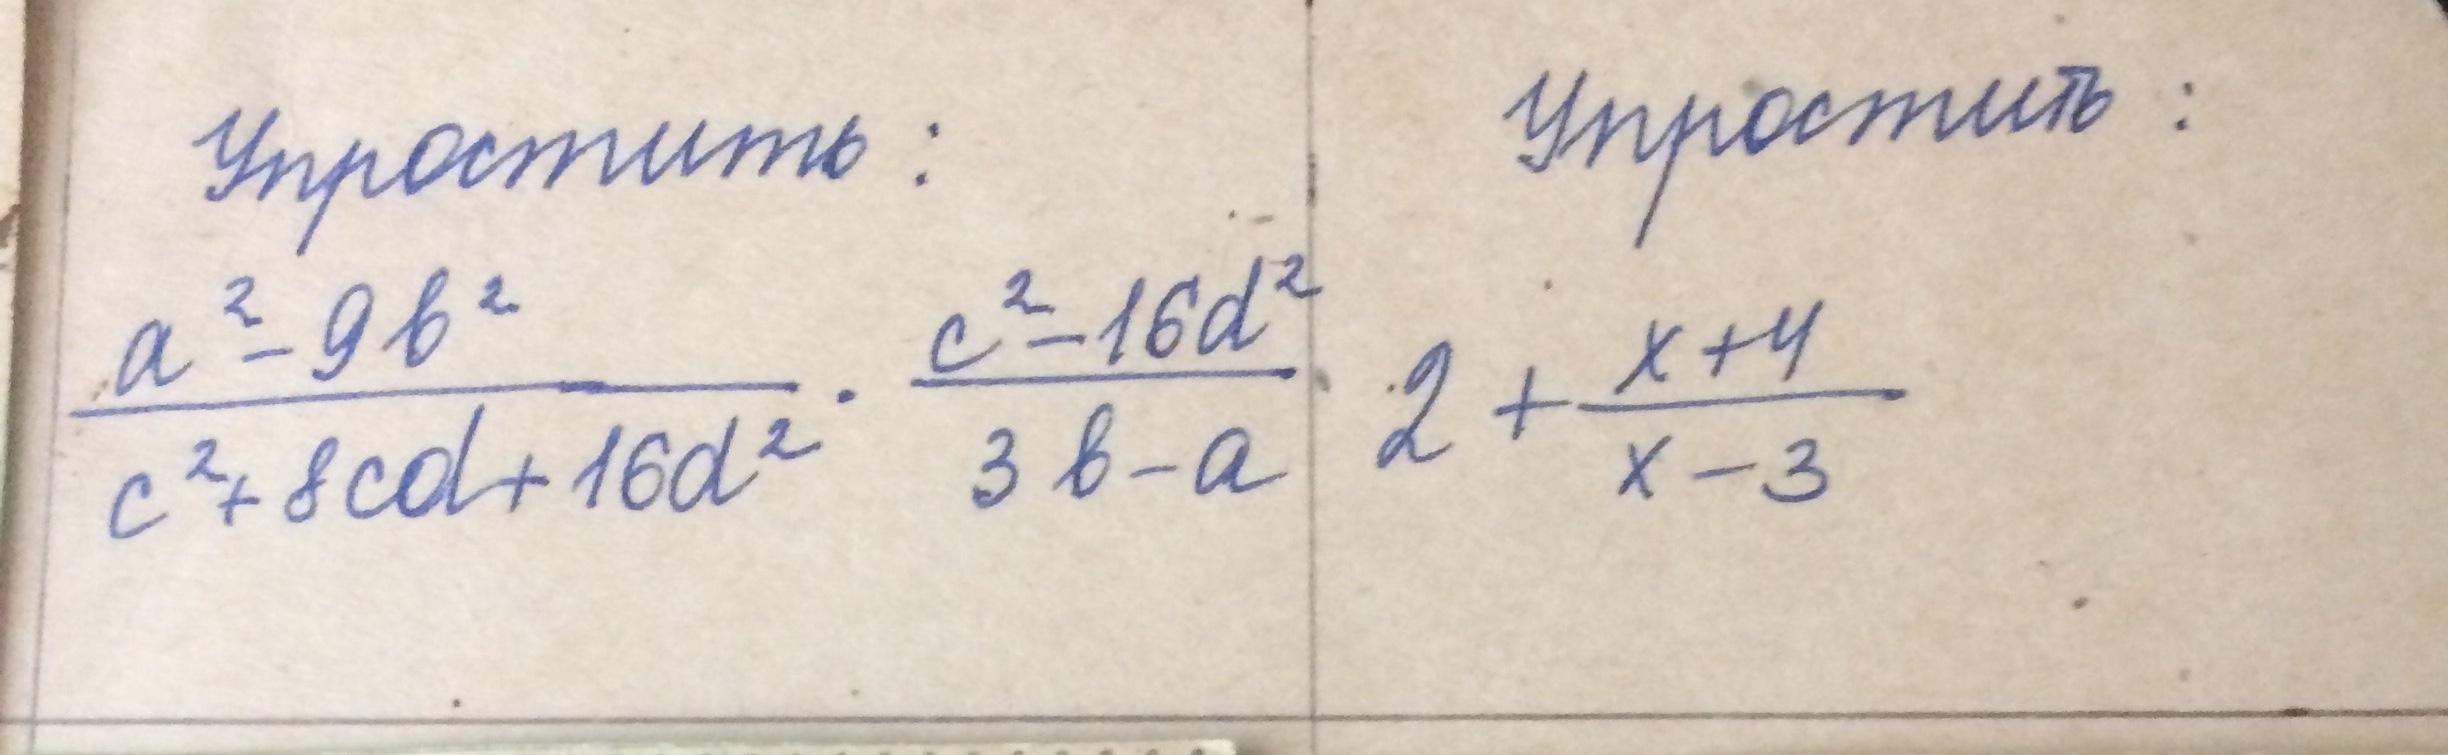 Упростить:
a² - 9b² / c² + 8cd + 16d² · c² - 16d² / 3b - a
Упростить:
2 + x + 4 / x - 3